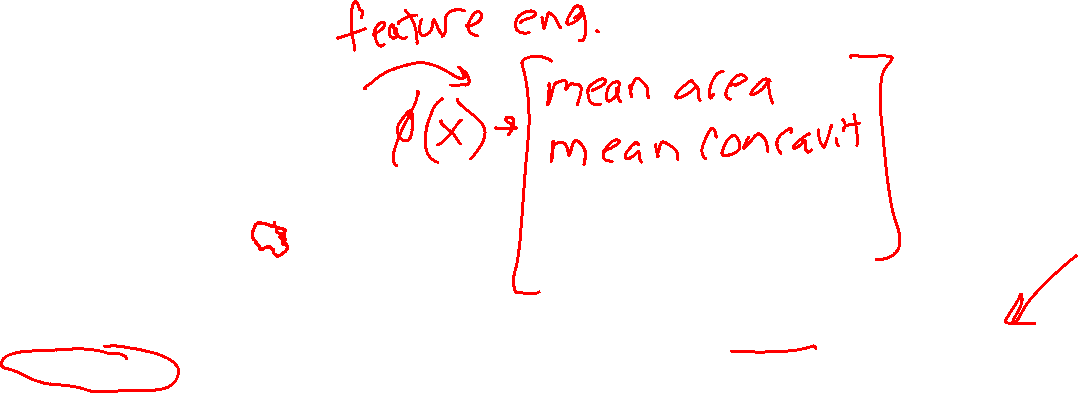 feature eng.
ϕ(x) → [mean area
mean concavit]